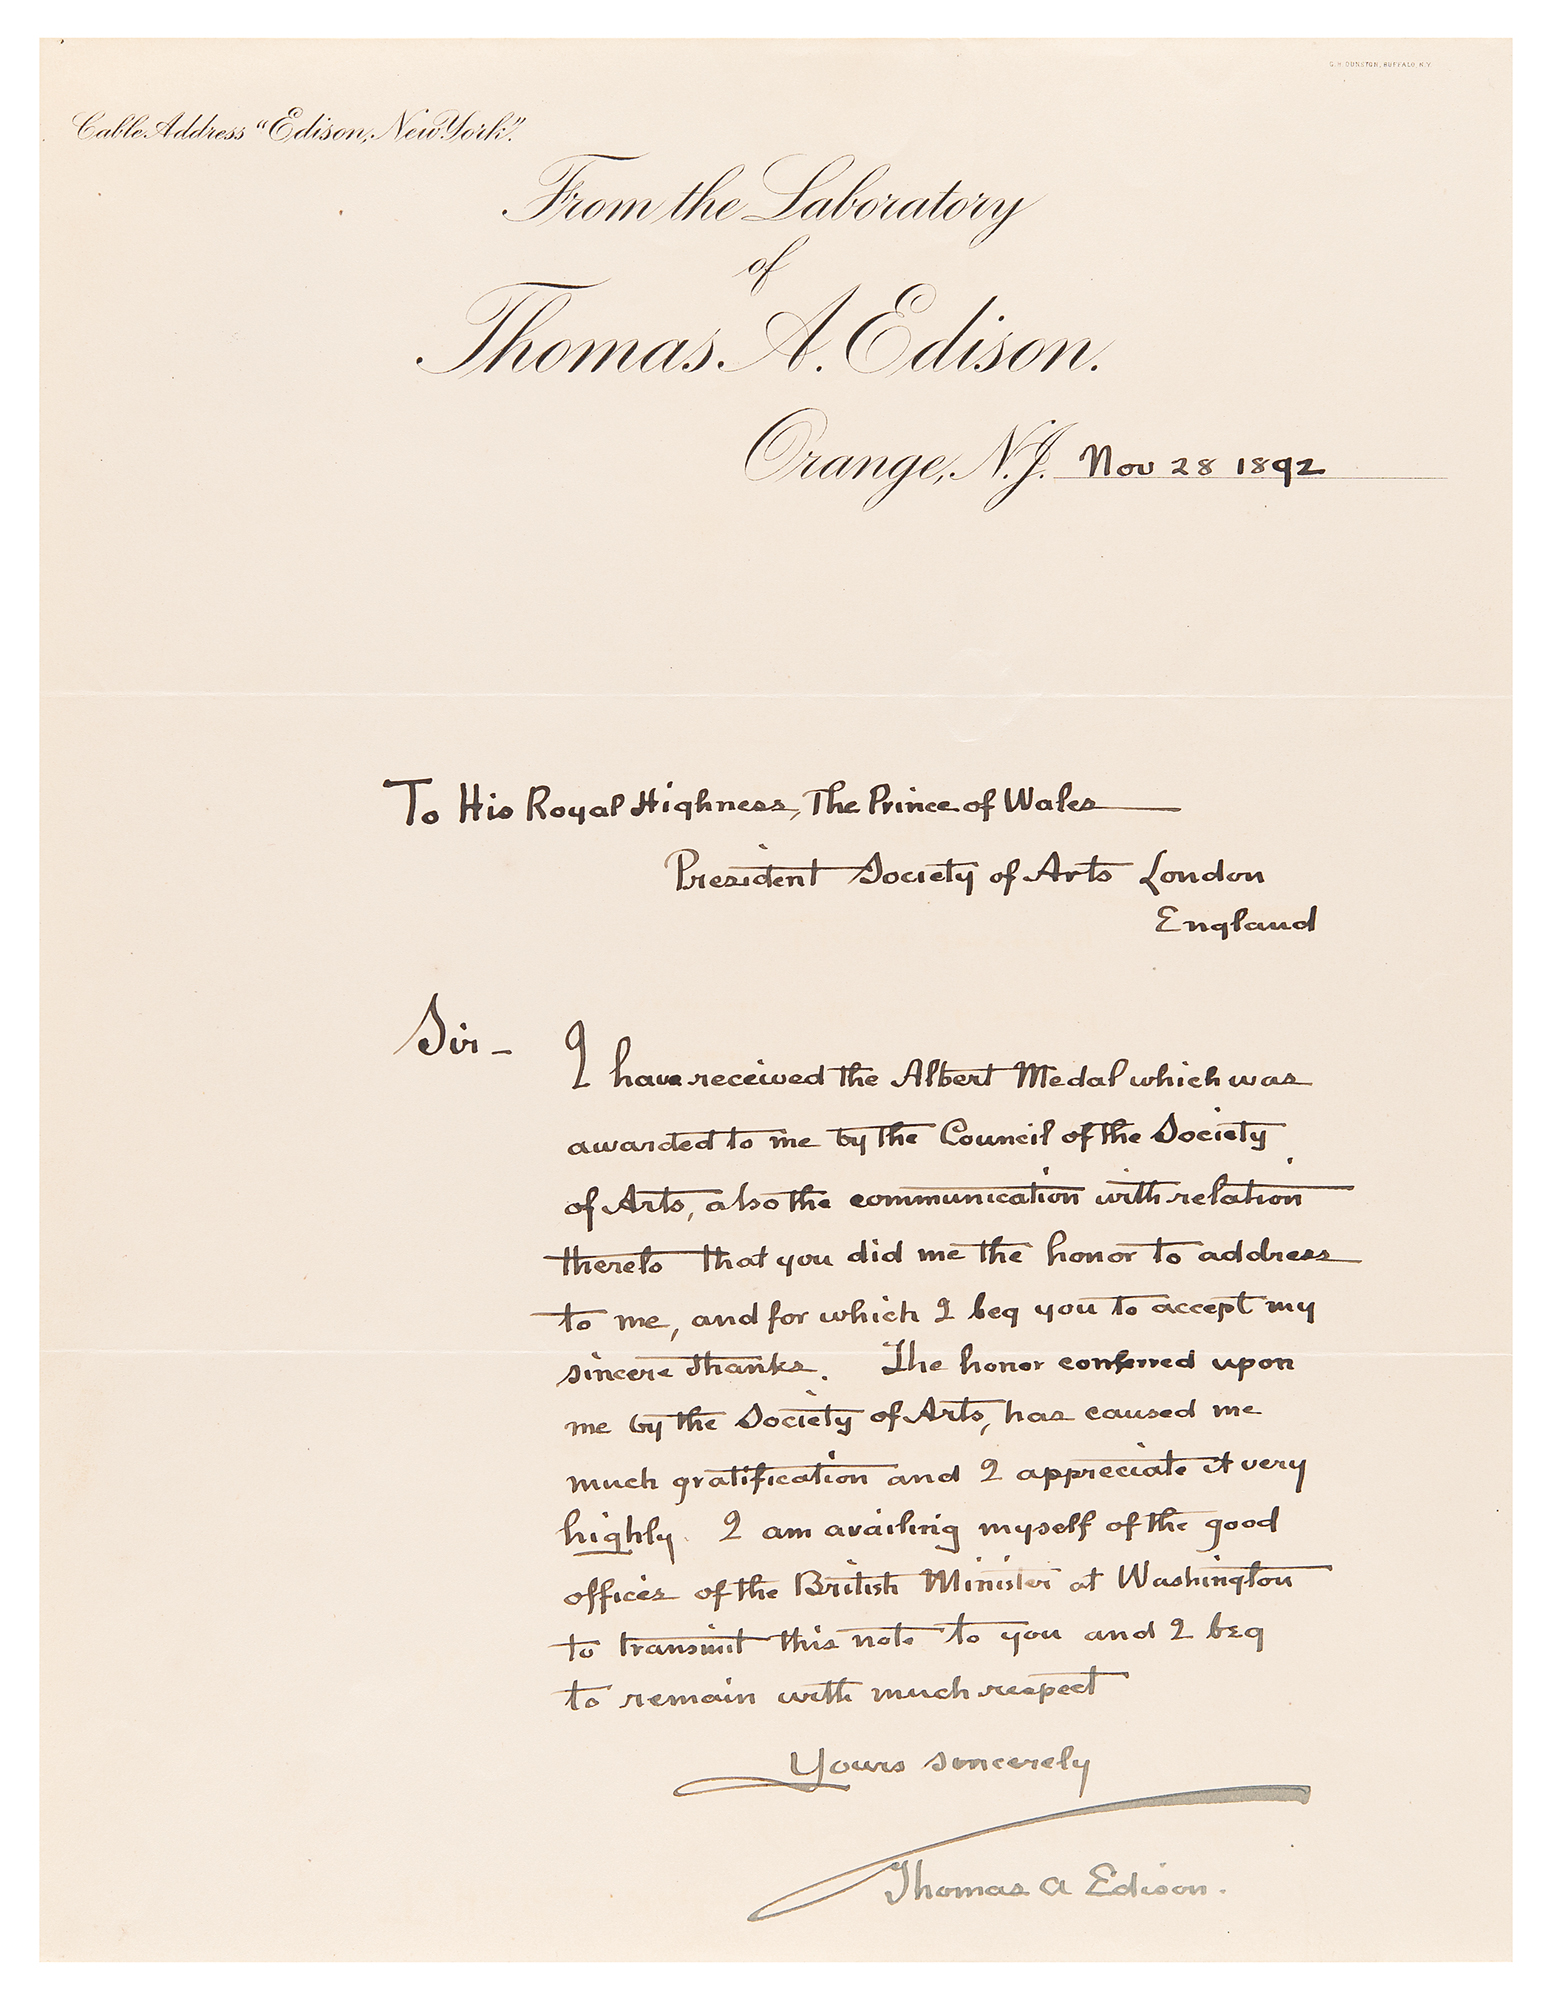 G. H. DUNSTON, BUFFALO, N.Y.
Cable Address "Edison, New York".
From the Laboratory
of
Thomas A. Edison.
Orange, N.J. Nov 28 1892
To His Royal Highness, The Prince of Wales
President Society of Arts London
England
Sir - I have received the Albert Medal which was
awarded to me by the Council of the Society
of Arts, also the communication with relation
thereto that you did me the honor to address
to me, and for which I beg you to accept my
sincere thanks. The honor conferred upon
me by the Society of Arts, has caused me
much gratification and I appreciate it very
highly. I am availing myself of the good
offices of the British Minister at Washington
to transmit this note to you and I beg
to remain with much respect
Yours sincerely
Thomas A Edison.